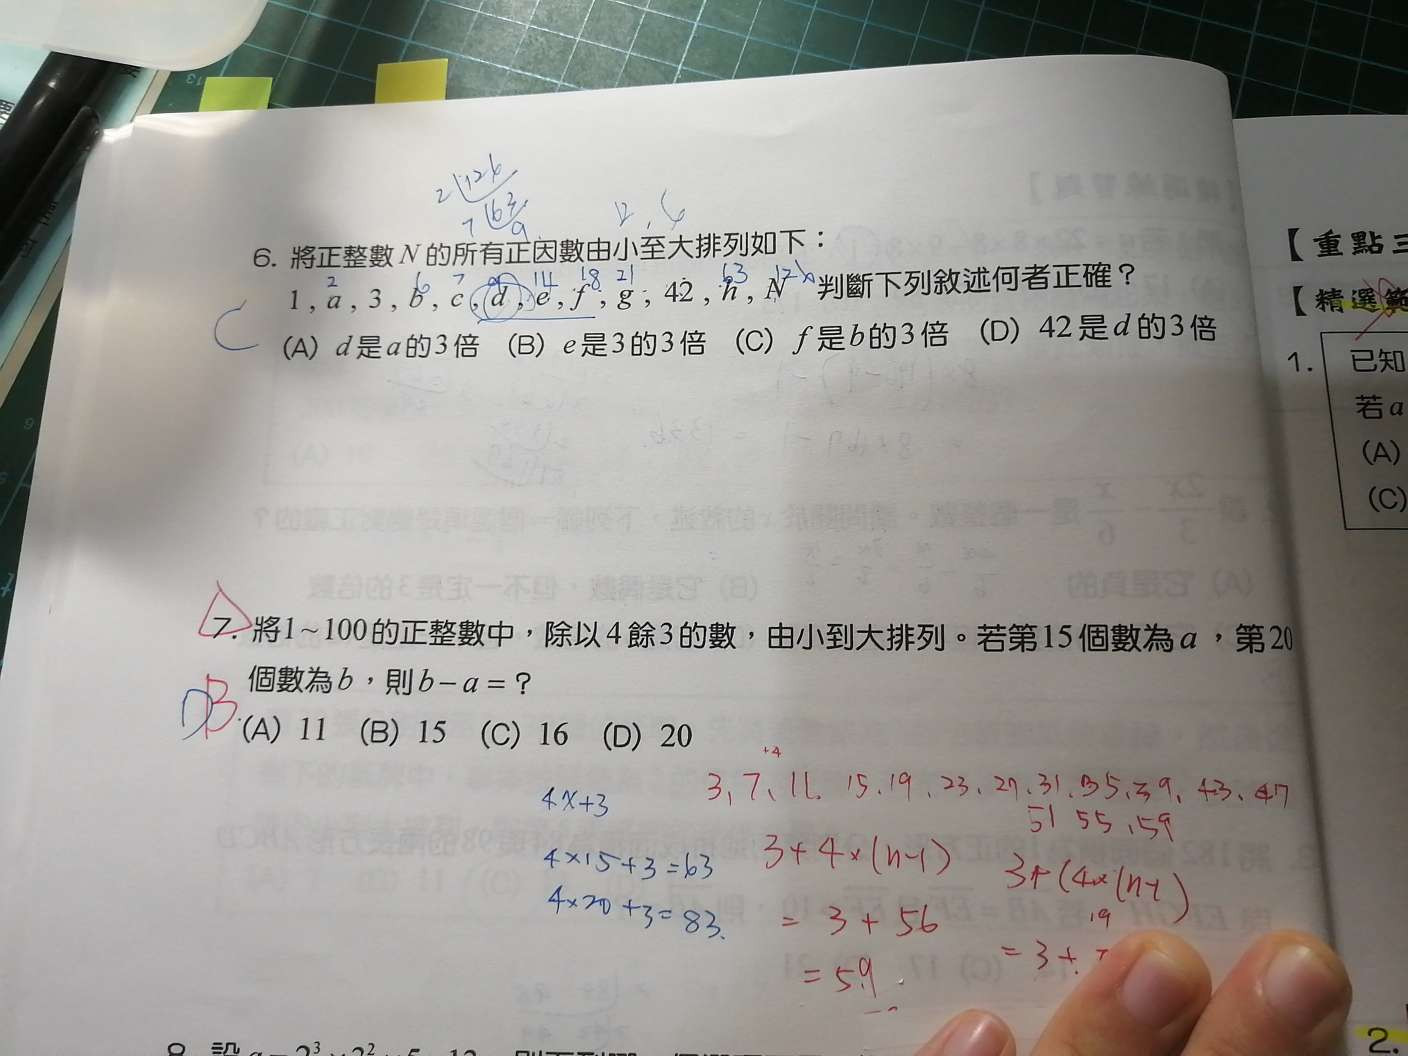 2 126
7 63
9
6. 將正整數N的所有正因數由小至大排列如下：
2 6 7 9 14 18 21 63 126
1 , a , 3 , b , c , d , e , f , g , 42 , h , N 判斷下列敘述何者正確？
C
(A) d是a的3倍 (B) e是3的3倍 (C) f是b的3倍 (D) 42是d的3倍
7. 將1~100的正整數中，除以4餘3的數，由小到大排列。若第15個數為a，第20
個數為b，則b－a＝？
D B
(A) 11 (B) 15 (C) 16 (D) 20
+4
3、7、11、15、19、23、27、31、35、39、43、47
51 55、59
4x+3
4×15+3=63
4×20+3=83.
3+4×(n-1)
= 3+56
= 59
3+(4×(n-1)
19
= 3+
8. 設
【重點三
【精選範
1. 已知
若a
(A)
(C)
2.